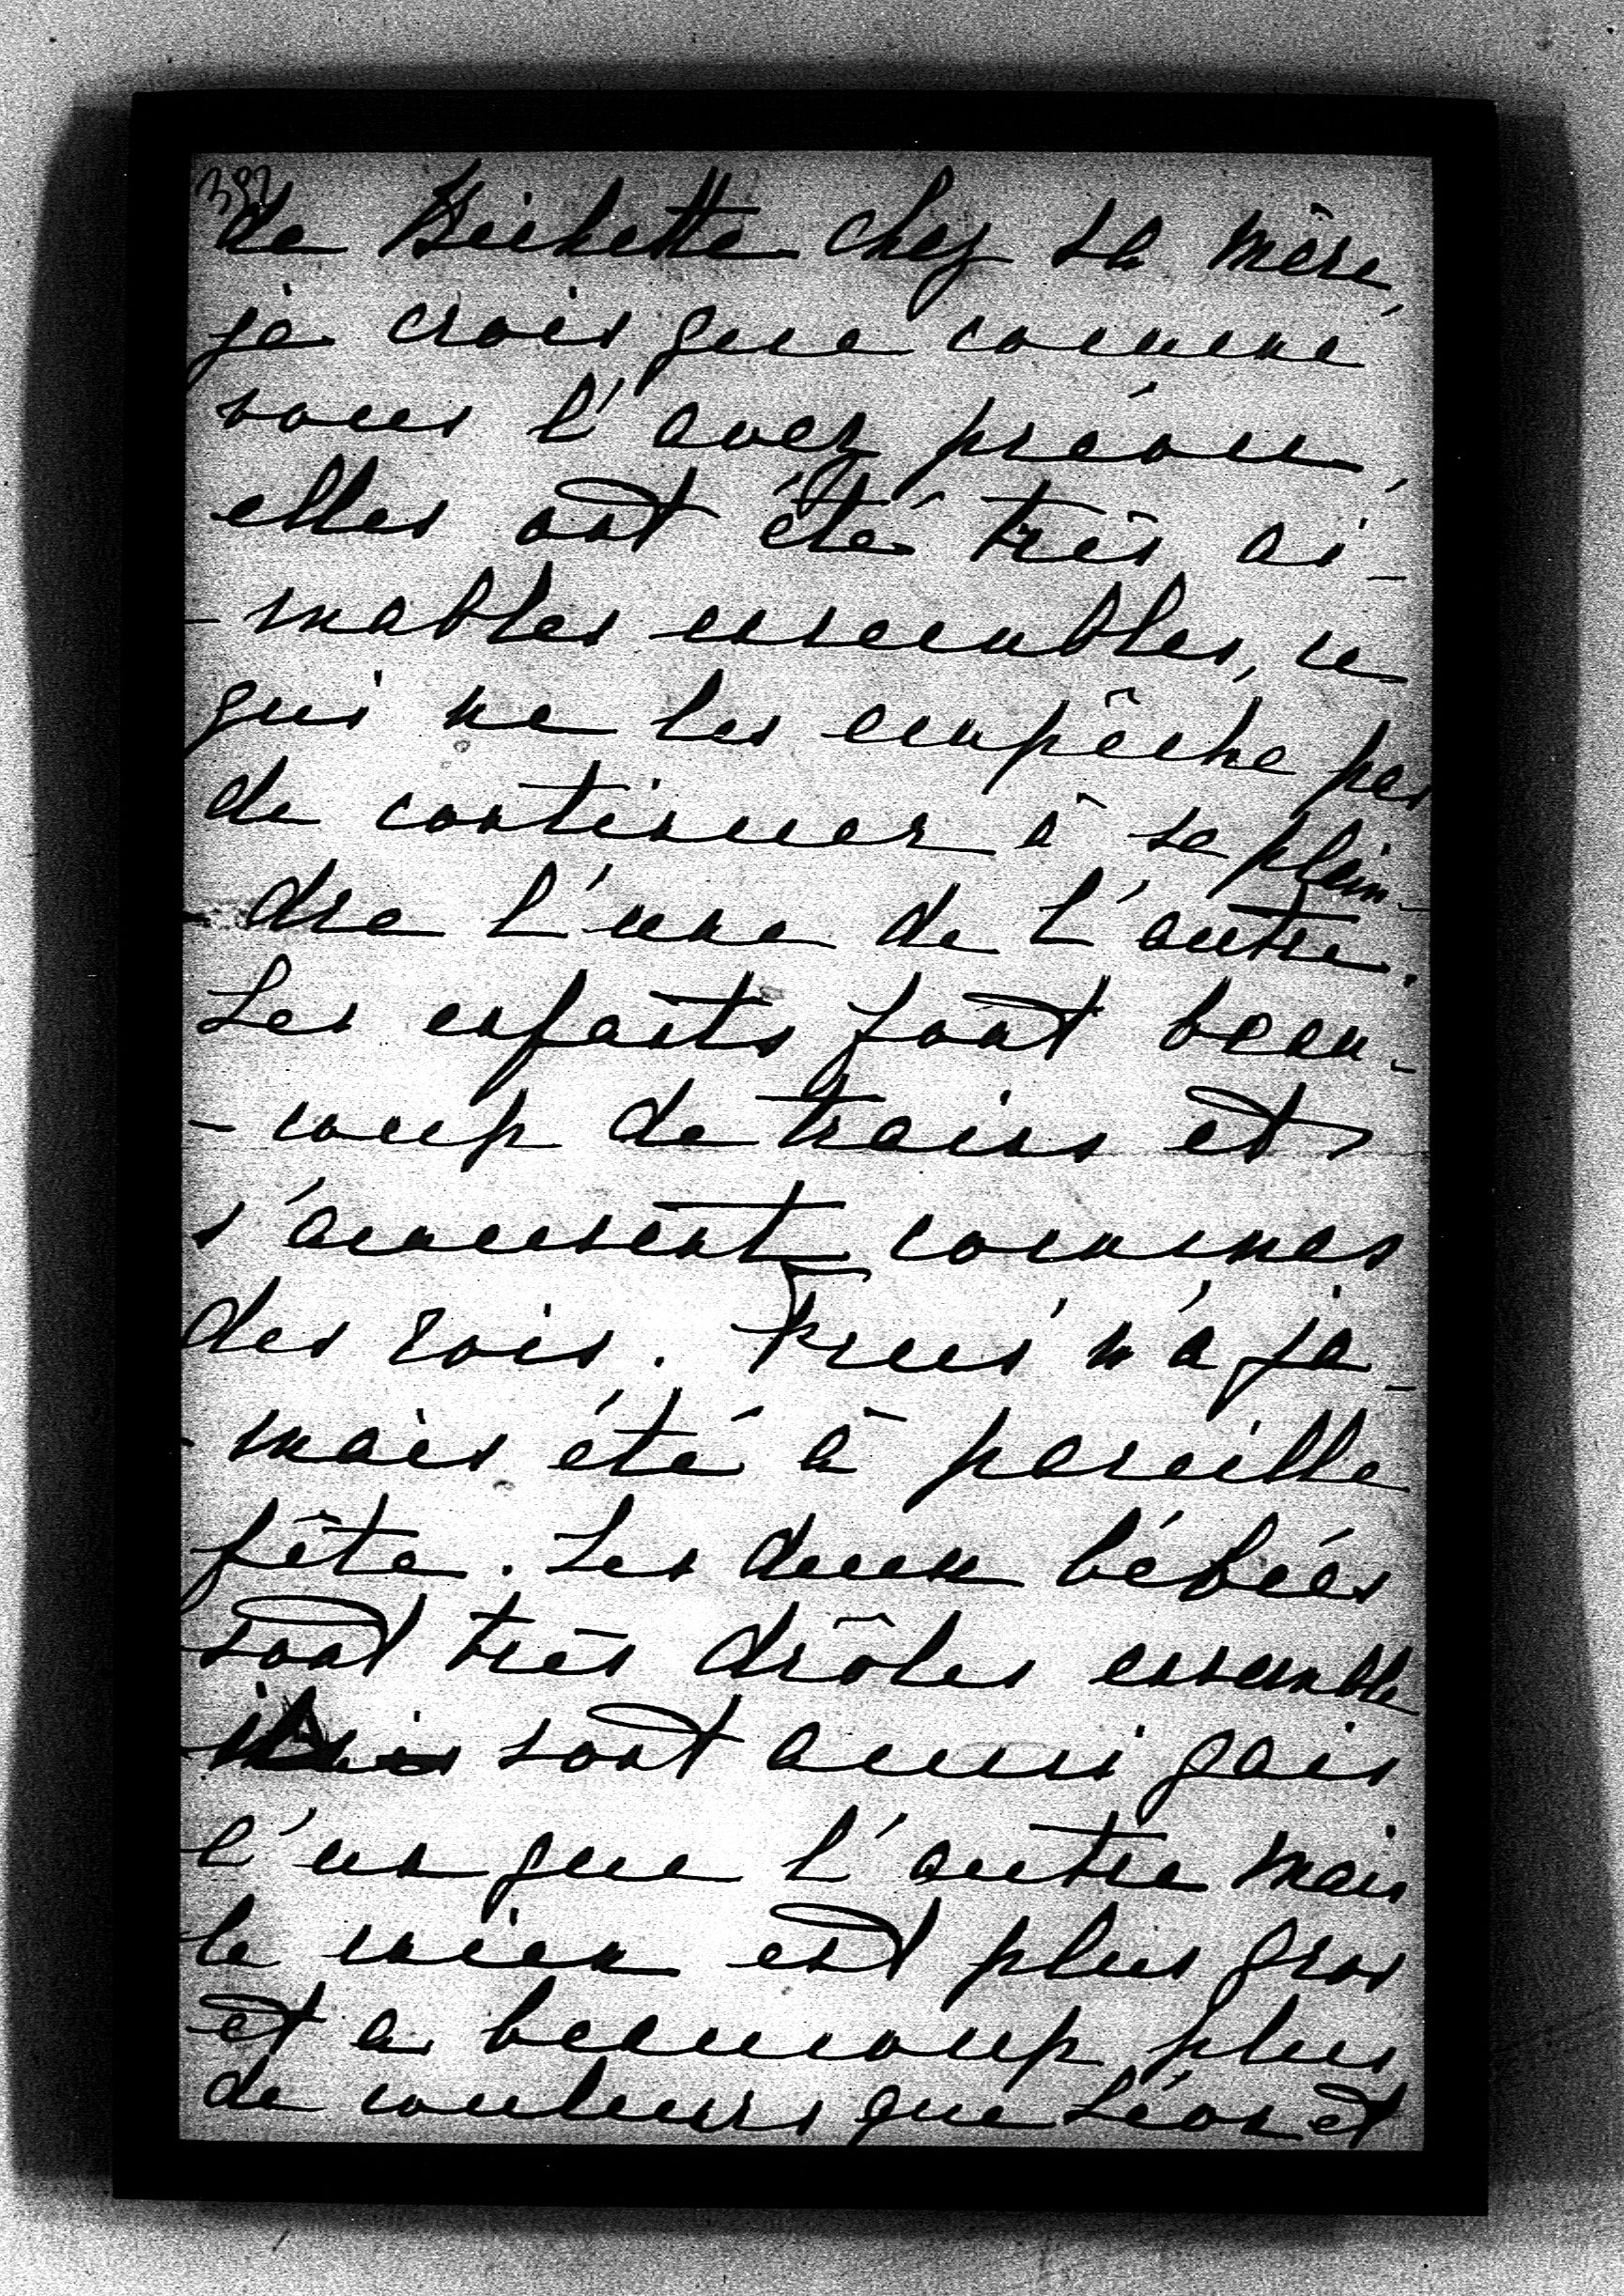 392
de Bichette chez sa mère,
je crois que comme
vous l'avez prévu,
elles ont été très ai-
-mables ensembles, ce
qui ne les empêche pas
de continuer à se plain-
-dre l'une de l'autre.
Les enfants font beau-
-coup de train et
s'amusent commes
des rois. n'a ja-
-mais été à pareille
fête. Les deux bébées
sont très drôles ensemble
sont aussi gais
l'un que l'autre mais
le mien est plus gros
et a beaucoup plus
de couleurs que Léon et